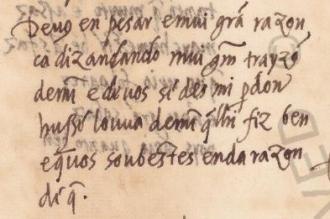 Deuo en pesar e mui grã razon
ca diz andando mui grã trayzõ
demi e de uos si d's mi pdon
hu ssi louua demi q̃ lhi fiz ben
e q̃ uos soubestes end a razon
di q̃.